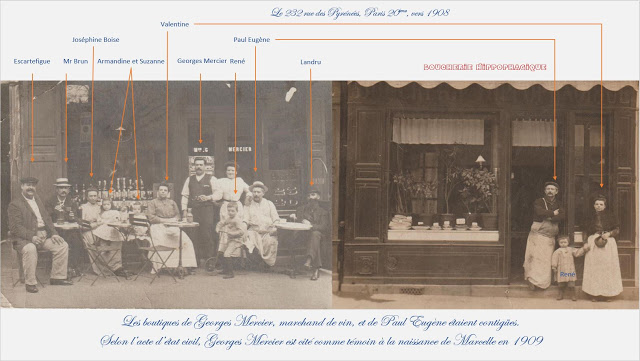 Le 232 rue des Pyrénées, Paris 20ème, vers 1908
Valentine
Joséphine Boise
Paul Eugène
Escartefigue
Mr Brun
Armandine et Suzanne
Georges Mercier
René
Landru
BOUCHERIE HIPPOPHAGIQUE
MERCIER
René
Les boutiques de Georges Mercier, marchand de vin, et de Paul Eugène étaient contigües.
Selon l'acte d'état civil, Georges Mercier est cité comme témoin à la naissance de Marcelle en 1909